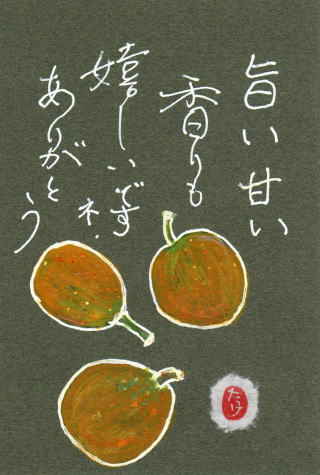 旨い甘い
香りも
嬉しいですネ.
ありがとう
たけ